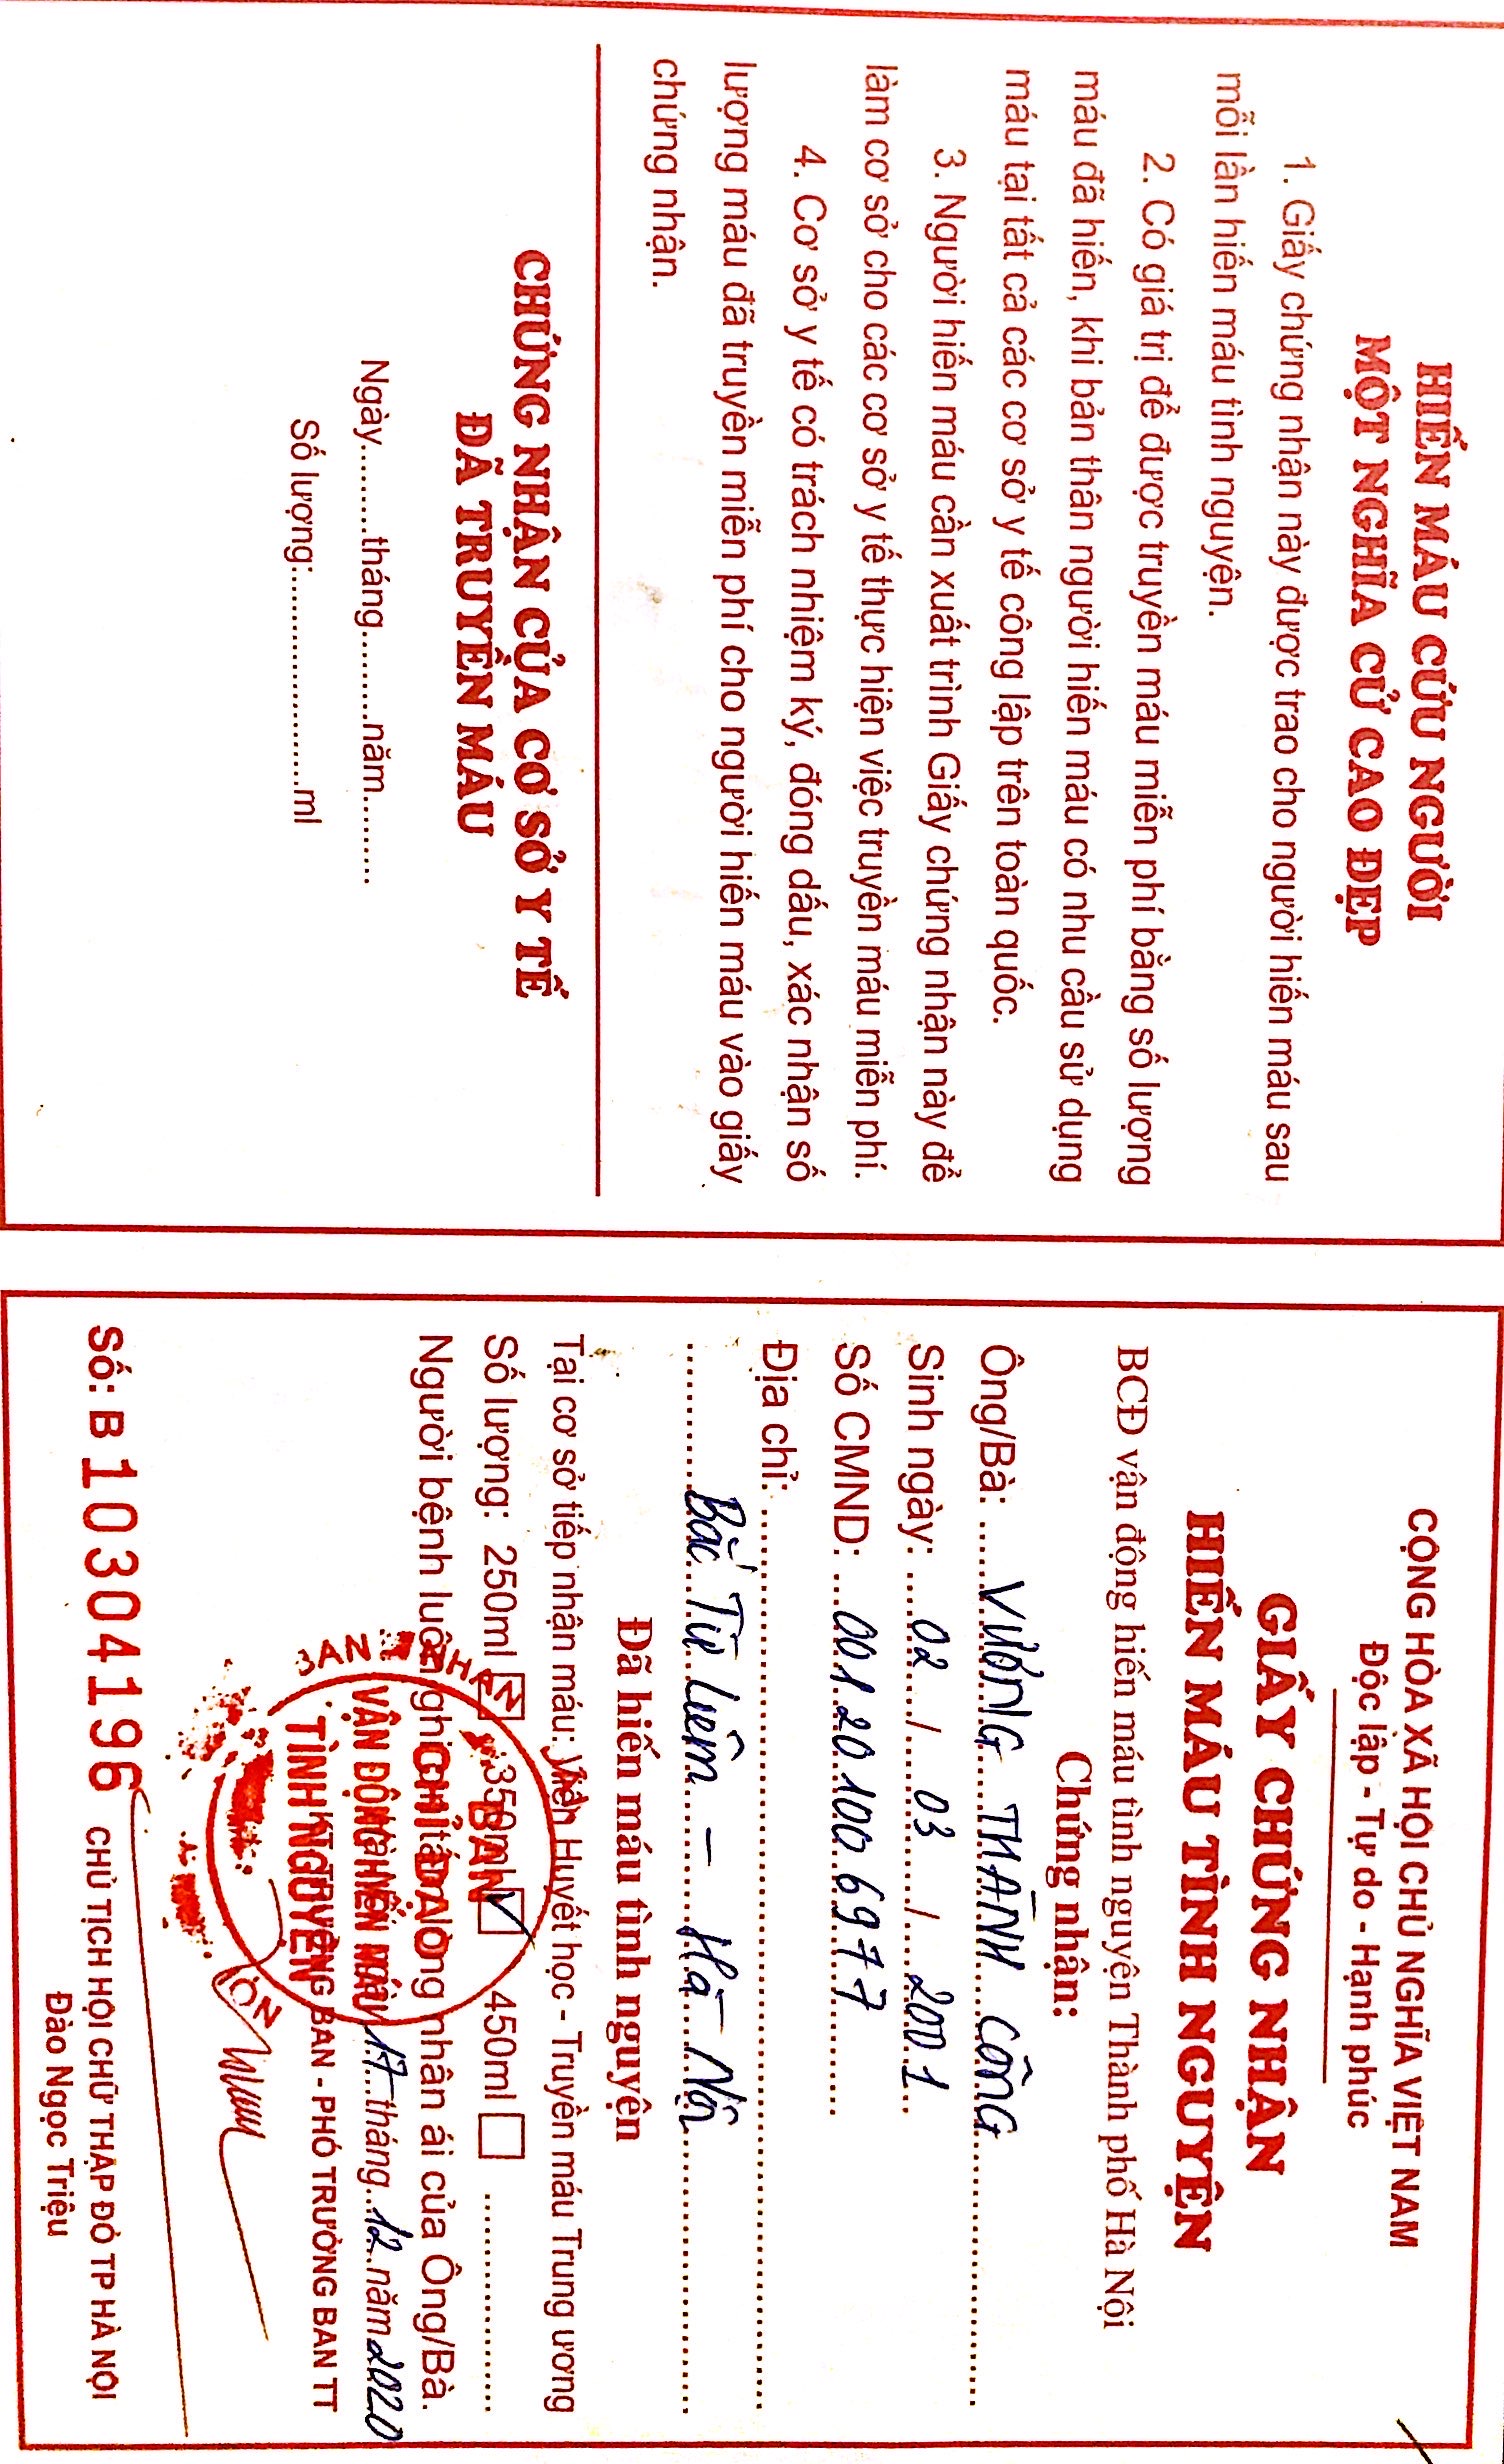 HIẾN MÁU CỨU NGƯỜI
MỘT NGHĨA CỬ CAO ĐẸP
1. Giấy chứng nhận này được trao cho người hiến máu sau
mỗi lần hiến máu tình nguyện.
2. Có giá trị để được truyền máu miễn phí bằng số lượng
máu đã hiến, khi bản thân người hiến máu có nhu cầu sử dụng
máu tại tất cả các cơ sở y tế công lập trên toàn quốc.
3. Người hiến máu cần xuất trình Giấy chứng nhận này để
làm cơ sở cho các cơ sở y tế thực hiện việc truyền máu miễn phí.
4. Cơ sở y tế có trách nhiệm ký, đóng dấu, xác nhận số
lượng máu đã truyền miễn phí cho người hiến máu vào giấy
chứng nhận.
CHỨNG NHẬN CỦA CƠ SỞ Y TẾ
ĐÃ TRUYỀN MÁU
Ngày.........tháng.........năm.........
Số lượng:....................ml
CỘNG HÒA XÃ HỘI CHỦ NGHĨA VIỆT NAM
Độc lập - Tự do - Hạnh phúc
GIẤY CHỨNG NHẬN
HIẾN MÁU TÌNH NGUYỆN
BCĐ vận động hiến máu tình nguyện Thành phố Hà Nội
Chứng nhận:
Ông/Bà: VƯƠNG THÀNH CÔNG
Sinh ngày: 02 / 03 / 2001
Số CMND: 001201006977
Địa chỉ:
Bắc Từ Liêm - Hà Nội
Đã hiến máu tình nguyện
Tại cơ sở tiếp nhận máu: Viện Huyết học - Truyền máu Trung ương
Số lượng: 250ml 350ml 450ml
Người bệnh luôn ghi nhớ tấm lòng nhân ái của Ông/Bà.
17 tháng 12 năm 2020
TRƯỞNG BAN - PHÓ TRƯỞNG BAN TT
BAN
CHỈ ĐẠO
VẬN ĐỘNG HIẾN MÁU
TÌNH NGUYỆN
Số: B 10304196
CHỦ TỊCH HỘI CHỮ THẬP ĐỎ TP HÀ NỘI
Đào Ngọc Triệu